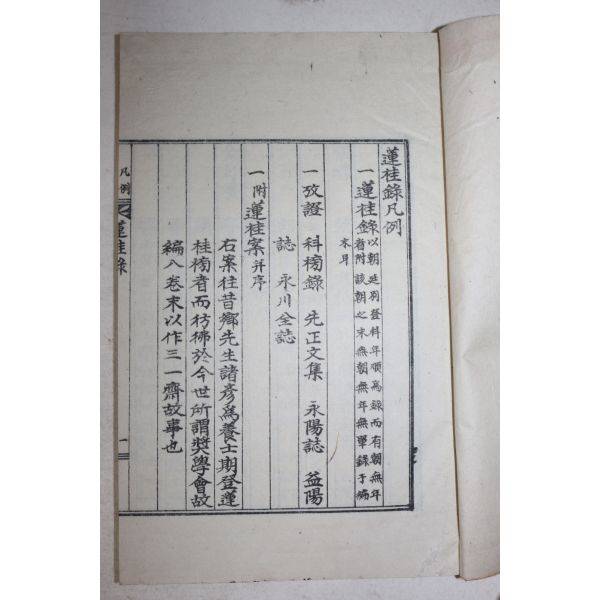 蓮桂錄凡例
一蓮桂錄以朝廷別登科年順爲錄而有朝無年
者附該朝之末無朝無年無單錄于編
末耳
一攷證　科榜錄　先正文集　永陽誌　益陽
誌　永川全誌
一附蓮桂案并序
右案往昔鄉先生諸彦爲養士期登蓮
桂榜者而彷彿於今世所謂奬學會故
編八卷末以作三一齋故事也
凡例
蓮桂錄
一